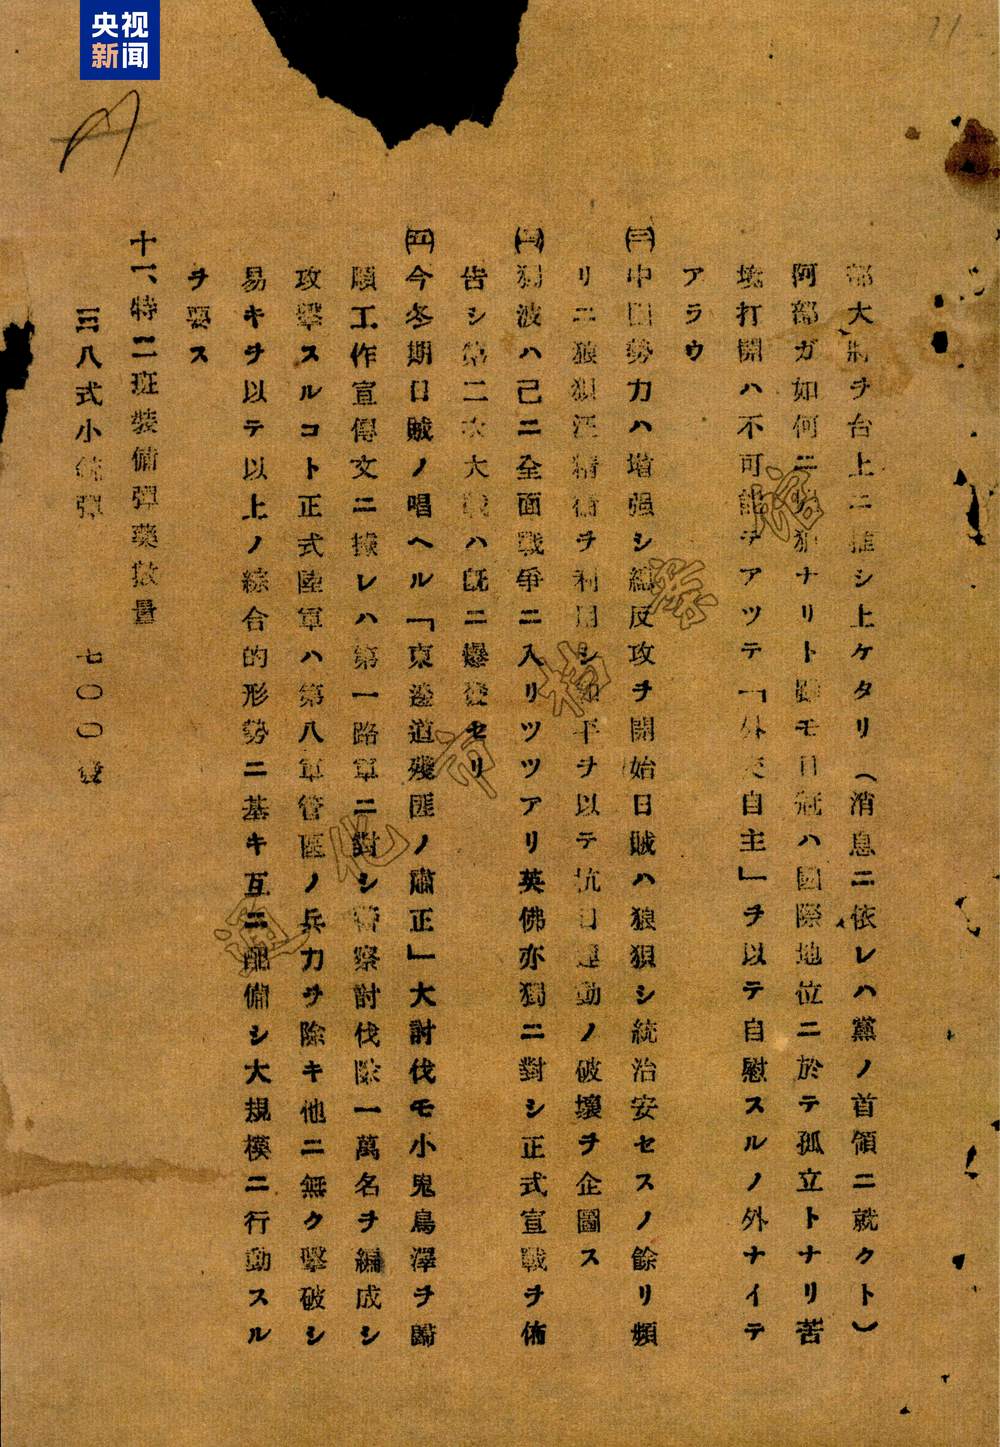 央视
新闻
部大將ヲ台上ニ推シ上ケタリ（消息ニ依レハ黨ノ首領ニ就クト）
阿部ガ如何ニ ナリト雖モ日冦ハ國際地位ニ於テ孤立トナリ苦
境打開ハ不可能デアツテ「外交自主」ヲ以テ自慰スルノ外ナイテ
アラウ
㈢中國勢力ハ增强シ總反攻ヲ開始日賊ハ狼狽シ統治安セスノ餘リ頻
リニ狼狽汪精衞ヲ利用シ和平ヲ以テ抗日運動ノ破壞ヲ企圖ス
㈣獨波ハ己ニ全面戰爭ニ入リツツアリ英佛亦獨ニ對シ正式宣戰ヲ佈
告シ第二次大戰ハ既ニ爆發セリ
㈤今冬期日賊ノ唱ヘル「東邊道残匪ノ肅正」大討伐モ小鬼鳥澤ヲ歸
順工作宣傳文ニ據レハ第一路軍ニ對シ警察討伐隊一萬名ヲ編成シ
攻擊スルコト正式陸軍ハ第八軍管區ノ兵力ヲ除キ他ニ無ク擊破シ
易キヲ以テ以上ノ綜合的形勢ニ基キ互ニ配備シ大規模ニ行動スル
ヲ要ス
十一、特二班裝備彈藥數量
三八式小銃彈 七〇〇發
通化市档案馆